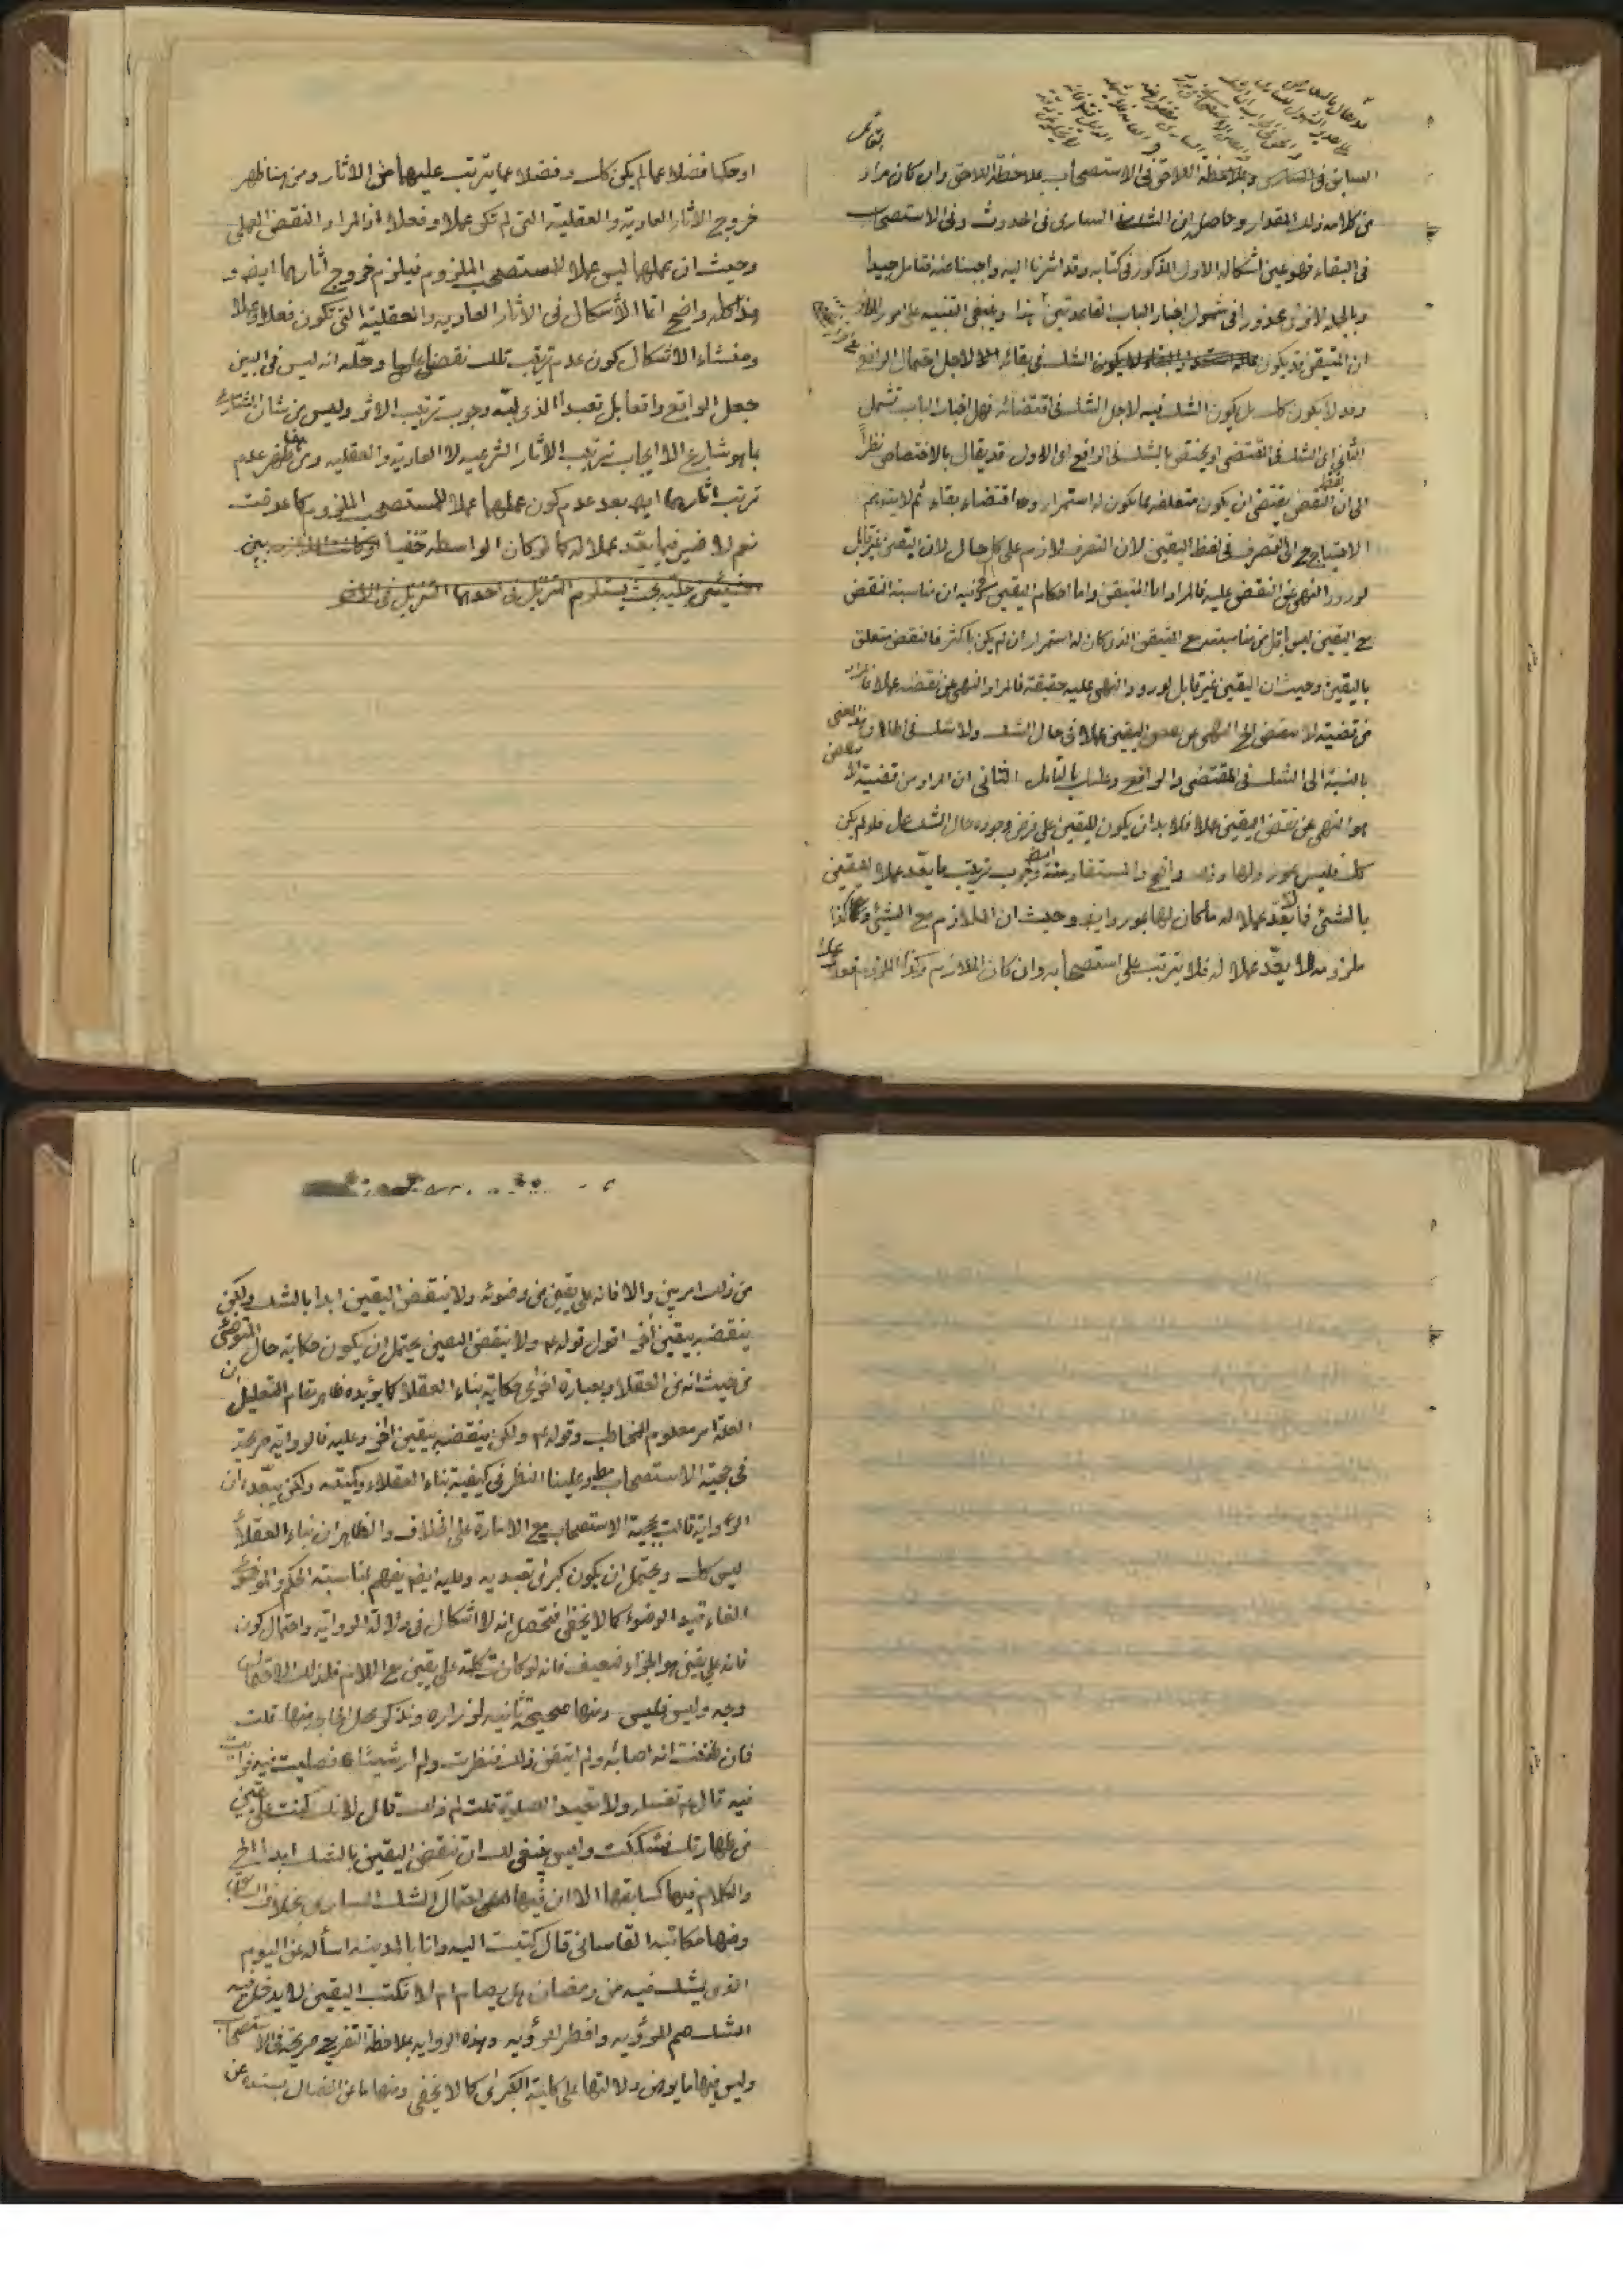 السابق فى السارى وبملاحظة اللاحق فى الاستصحاب بملاحظة اللاحق وان كان مراد
من كلامه ذلك المقدار وحاصل ان الشك السارى فى الحدوث وفى الاستصحاب
فى البقاء فهو عين اشكاله الاول المذكور فى كتابه وقد اشرنا اليه واجبنا عنه فتامل جيدا
وبالجملة لا نرى محذورا فى شمول اخبار الباب القاعدتين هذا وينبغى التنبيه على امور الاول
ان المتيقن قد يكون لا يكون الشك فى بقائه الا لاجل احتمال الرافع
وقد لا يكون كك بل يكون الشك فيه لاجل الشك فى اقتضائه فهل اخبار الباب تشمل
الثانى اى الشك فى المقتضى او يختص بالشك فى الرافع اى الاول قد يقال بالاختصاص نظراً
الى ان لفظ النقض يقتضى ان يكون متعلقه مما يكون له استمرار وله اقتضاء بقاء ثم لا يتوهم
الاحتياج ح الى التصرف فى لفظ اليقين لان التصرف لازم على كل حال لان اليقين غير قابل
لورود النهى عن النقض عليه فالمراد اما المتيقن واما احكام اليقين وفيه ان مناسبة النقض
مع اليقين ليس باقل من مناسبته مع المتيقن الذى كان له استمرار ان لم يكن باكثر فالنقض متعلق
باليقين وحيث ان اليقين غير قابل لورود النهى عليه حقيقة فالمراد النهى عن نقضه عملا فالمراد
من قضية لا تنقض الخ النهى عن نقض اليقين عملا فى حال الشك ولا شك فى اطلاق هذا المعنى
بالنسبة الى الشك فى المقتضى والرافع وعليك بالتامل الثانى ان المراد من قضية لا تنقض
هو النهى عن نقض اليقين عملا فلا بد ان يكون لليقين على فرض وجوده حال الشك عمل فلو لم يكن
كك فليس بمورد لها وذلك واضح والمستفاد منه ايضا وجوب ترتيب ما يعدّ عملا لليقين
بالشئ فما لا يعدّ عملا له ما كان لها بمورد ايضا وحيث ان الملازم مع الشئ وكذا
ملزومه لا يعدّ عملا له فلا يترتب على استصحابه وان كان الملازم وكذا الملزوم فعلا عملا
او حكما فضلا عما لم يكن كك وفضلا عما يترتب عليهما من الاثار ومن هنا ظهر
خروج الاثار العادية والعقلية التى لم تكن عملا وفعلا اذ المراد النقض العملى
وحيث ان عملها ليس عملا لمستصحب الملزوم فيلزم خروج اثارهما ايضا و
هذا كله واضح انما الاشكال فى الاثار العادية والعقلية التى تكون فعلا وعملا
ومنشاء الاشكال كون عدم ترتيب تلك نقضا عمليا وحلّه انه ليس فى البين
جعل الواقع واقعا بل تعبداً الذى لبّه وجوب ترتيب الاثر وليس من شان الشارع
بما هو شارع الا ايجاب ترتيب الاثار الشرعية لا العادية والعقلية ومن هنا ظهر عدم
ترتب اثارهما ايضا بعد عدم كون عملهما عملا لمستصحب الملزوم كما عرفت
نعم لا ضير فيما يعدّ عملا له كما لو كان الواسطة خفيا بين
الشيئين جليّه بحيث يستلزم التنزيل فى احدهما التنزيل فى الاخر
من ذلك امر بيّن والا فانه على يقين من وضوئه ولا ينقض اليقين ابدا بالشك ولكن
ينقضه بيقين آخر اقول قوله ع ولا ينقض اليقين يحتمل ان يكون حكاية حال المتوضئ
من حيث انه من العقلا وبعبارة اخرى حكاية بناء العقلا كما يؤيده ظاهر مقام التعليل ان
العلة امر معلوم للمخاطب وقوله ع ولكن ينقضه بيقين اخر وعليه فالرواية صريحة
فى حجية الاستصحاب مط وعلينا النظر فى كيفية بناء العقلاء وكميّته ولكن يبعّد ان
الرواية قالت بحجية الاستصحاب مع الامارة على الخلاف والظاهر ان بناء العقلاء
ليس كك ويحتمل ان يكون كبرى تعبدية وعليه ايضا يفهم بمناسبة الحكم والموضوع
الغاء قيد الوضوء كما لا يخفى فتحصل انه لا اشكال فى دلالة الرواية واحتمال كون
فانه على يقين هو الجزاء ضعيف فانه لو كان كلمة على يقين مع اللام فلذلك الاحتمال
وجه وليس فليس ومنها صحيحة ثانية لزرارة ونذكر محل الحاجة منها قلت
فان ظننت انه اصابه ولم اتيقن ذلك فنظرت ولم ار شيئا فصليت فيه فرايت
فيه قال ع تغسله ولا تعيد الصلوة قلت لم ذلك قال لانك كنت على يقين
من طهارتك فشككت وليس ينبغى لك ان تنقض اليقين بالشك ابدا الخ
والكلام فيها كسابقها الا ان فيها احتمال الشك السارى بخلاف السابق
ومنها مكاتبة القاسانى قال كتبت اليه وانا بالمدينة اسأله عن اليوم
الذى يشك فيه من رمضان هل يصام ام لا فكتب اليقين لا يدخل فيه
الشك صم للرؤية وافطر للرؤية وهذه الرواية بملاحظة التفريع صريحة فى الاستصحاب
وليس فيها ما يوهن دلالتها على كلية الكبرى كما لا يخفى ومنها ما عن الخصال بسنده عن